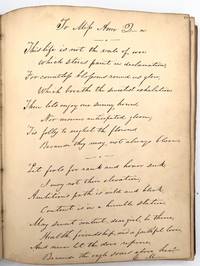 To Miss Ann D
This life is not the vale of woe
Which stoics paint in declamation
For countless blossoms round us glow,
Which breathe the sweetest exhalation
Then lets enjoy our sunny hours
Nor mourn anticipated gloom,
Tis folly to neglect the flowers
Because they may not always bloom
Let fools for rank and honor seek
I envy not their elevation,
Ambitions path is wild and bleak
Content is in a humble station
May sweet content, dear girl, be thine,
Health, friendship, and a faithful love,
And never let the dove repine,
Because the eagle soars above her